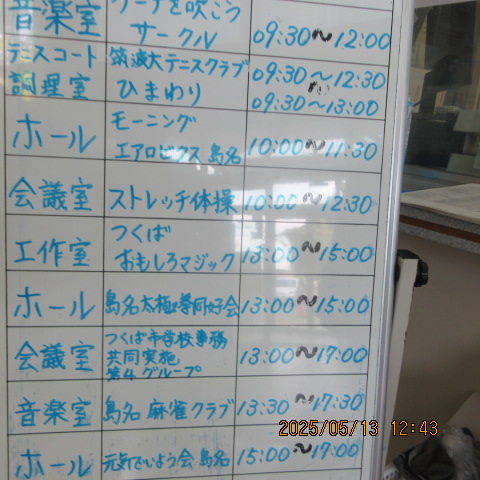 音楽室 オーナを吹こう
サークル 09:30〜12:00
テニスコート 筑波大テニスクラブ 09:30〜12:30
調理室 ひまわり 09:30〜13:00
ホール モーニング
エアロビクス 島名 10:00〜11:30
会議室 ストレッチ体操 10:00〜12:30
工作室 つくば
おもしろマジック 13:00〜15:00
ホール 島名太極拳同好会 13:00〜15:00
会議室 つくば市学校事務
共同実施
第4グループ 13:00〜17:00
音楽室 島名 麻雀クラブ 13:30〜17:30
ホール 元気でいよう会 島名 15:00〜17:00
2025/05/13 12:43